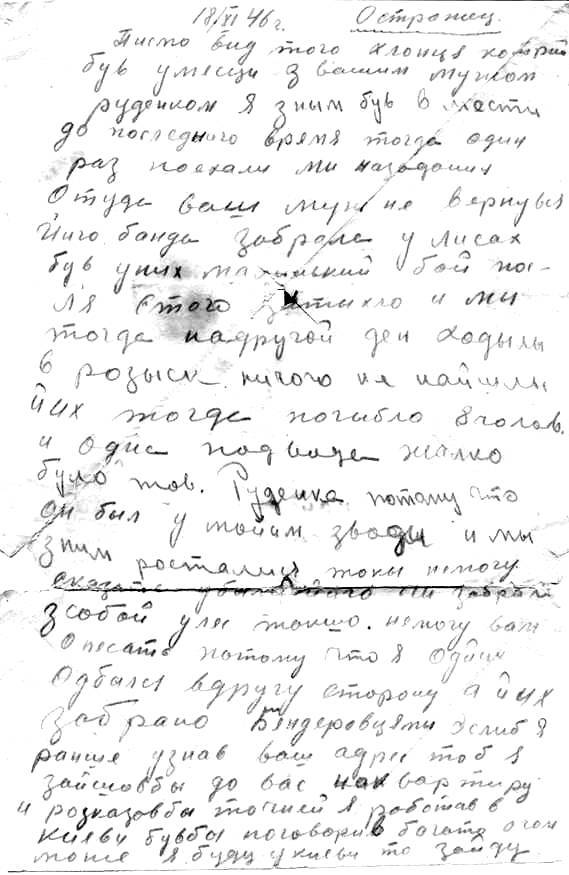 18/XI 46 г. Остражец.
Писмо вид того хлопця котрий
був умести з вашим мужом
руденком я зным був в мести
до последнього время тогда один
раз поехали ми назадания
Отуда ваш муж не вернувся
Його банда забрала у лисах
був уних маленький бой по-
ля етого затихло и ми
тогда надругой ден ходылы
в розыск ничого не найшлы
йих тогда погибло 8 голов.
и одна подвода жалко
було тов. Руденка потому что
он был у моим зводи и мы
зным росталися токы немогу
сказать убили його чи забрали
ззобой улес токшо. немогу вам
Описать потому что я один
Одбился вдругу сторону а йих
забрано Бендеровцями Эслиб я
ранше узнав ваш адрес тоб я
зайшовбы до вас на квартиру
и розказовбы точней я работав в
Киеви бувбы поговорив богато о том
може я буду у киеви то зайду